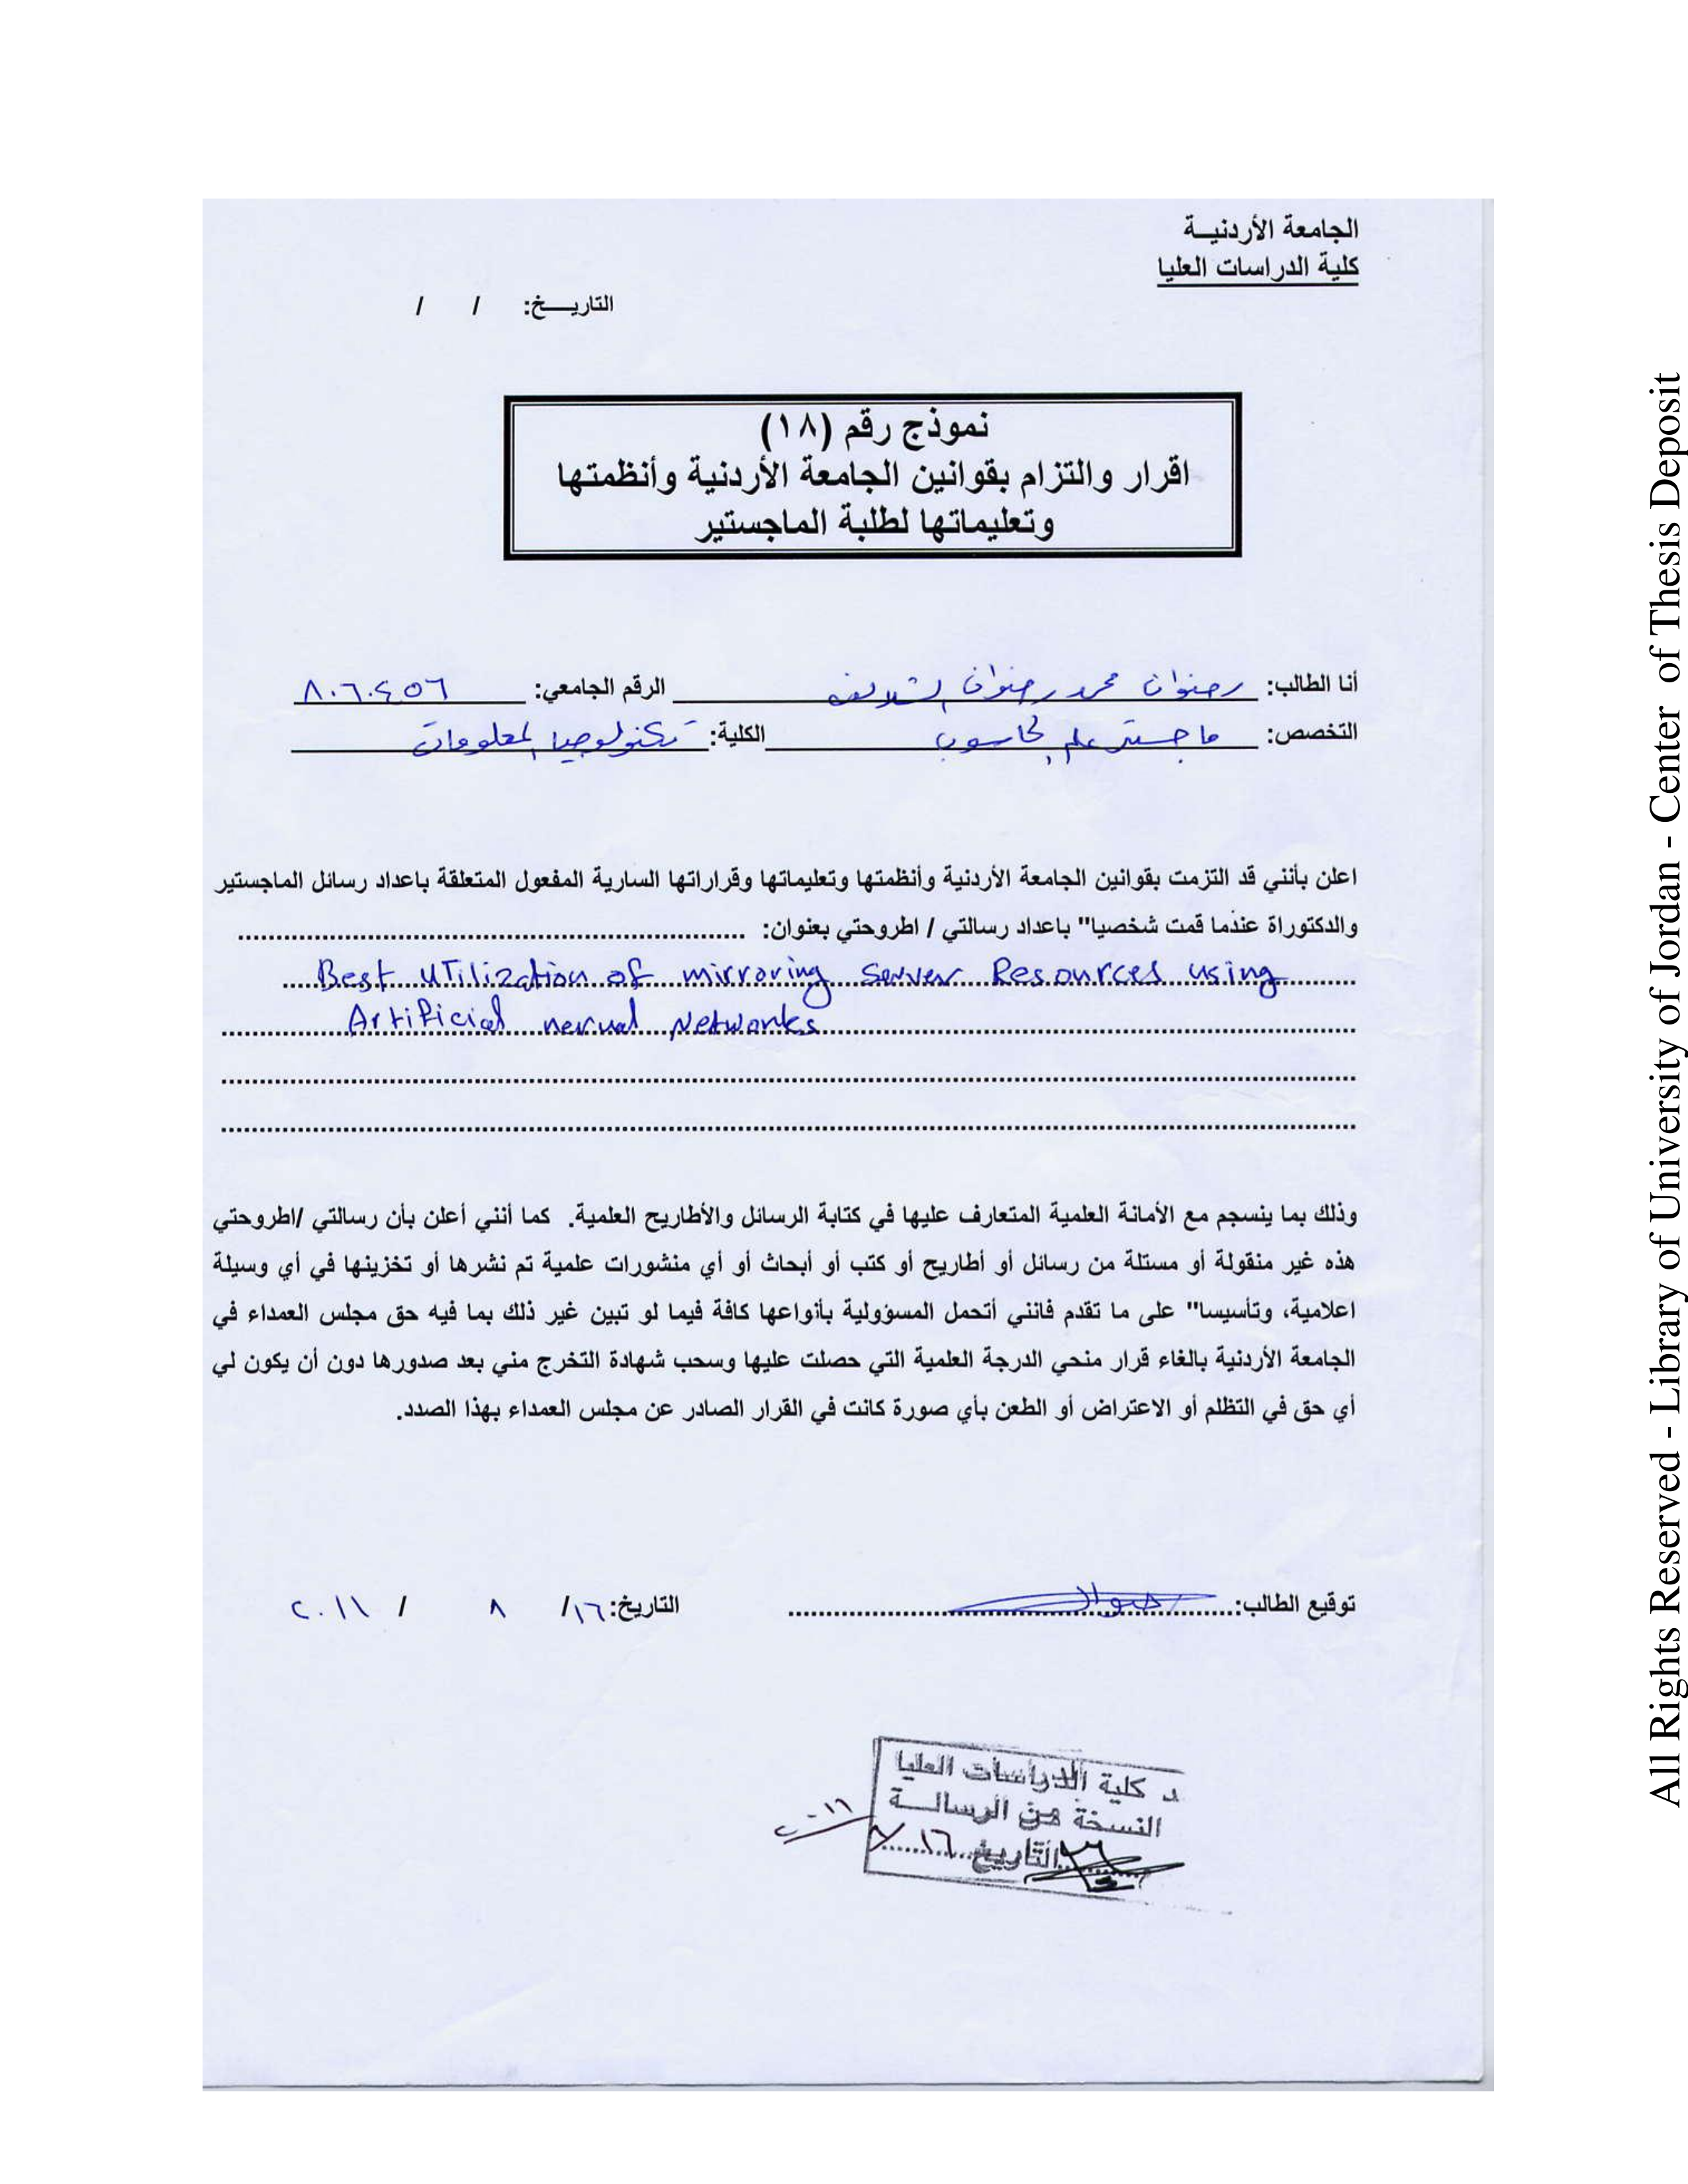 الجامعة الأردنيــة
كلية الدراسات العليا
التاريـــخ: / /
نموذج رقم (١٨)
اقرار والتزام بقوانين الجامعة الأردنية وأنظمتها
وتعليماتها لطلبة الماجستير
أنا الطالب: رضوان محمد رضوان الرقم الجامعي: ٨٠٦٠٤٥٦
التخصص: ماجستير علم الحاسوب الكلية: تكنولوجيا المعلومات
اعلن بأنني قد التزمت بقوانين الجامعة الأردنية وأنظمتها وتعليماتها وقراراتها السارية المفعول المتعلقة باعداد رسائل الماجستير
والدكتوراة عندما قمت شخصيا" باعداد رسالتي / اطروحتي بعنوان:
Best UTilization of mirroring Server Resources using
Artificial nerual Networks
وذلك بما ينسجم مع الأمانة العلمية المتعارف عليها في كتابة الرسائل والأطاريح العلمية. كما أنني أعلن بأن رسالتي /اطروحتي
هذه غير منقولة أو مستلة من رسائل أو أطاريح أو كتب أو أبحاث أو أي منشورات علمية تم نشرها أو تخزينها في أي وسيلة
اعلامية، وتأسيسا" على ما تقدم فانني أتحمل المسؤولية بأنواعها كافة فيما لو تبين غير ذلك بما فيه حق مجلس العمداء في
الجامعة الأردنية بالغاء قرار منحي الدرجة العلمية التي حصلت عليها وسحب شهادة التخرج مني بعد صدورها دون أن يكون لي
أي حق في التظلم أو الاعتراض أو الطعن بأي صورة كانت في القرار الصادر عن مجلس العمداء بهذا الصدد.
توقيع الطالب: التاريخ: ١٦/ ٨ / ٢٠١١
د كلية الدراسات العليا
النسخة من الرسالــة
التاريخ ١٦/٨/٢٠١١
All Rights Reserved - Library of University of Jordan - Center of Thesis Deposit